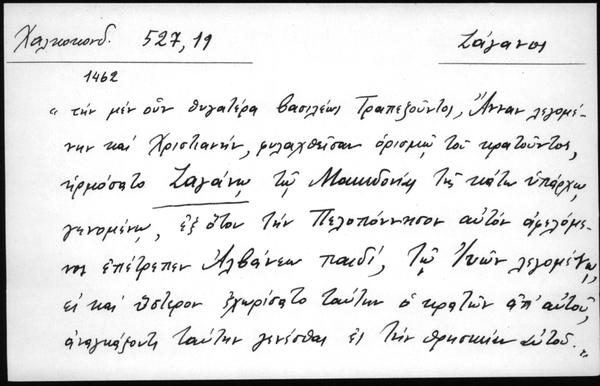 Χαλκοκονδ. 527,19 Ζάγανος
1462
"τὴν μὲν οὖν θυγατέρα βασιλέως Τραπεζοῦντος, Ἄνναν λεγομέ-
νην καὶ Χριστιανήν, φυλαχθεῖσαν ὁρισμῷ τοῦ κρατοῦντος,
ἡρμόσατο Ζαγάνῳ τῷ Μακεδονίας τῆς κάτω ὑπάρχῳ
γενομένῳ, ἐξ ὅτου τὴν Πελοπόννησον αὐτὸν ἀφελόμε-
νος ἐπέτρεπεν Ἀλβάνεω παιδί, τῷ λεγομένῳ,
εἰ καὶ ὕστερον ἐχωρίσατο ταύτην ὁ κρατῶν ἀπ' αὐτοῦ,
ἀναγκάζοντος ταύτην γενέσθαι ἐς τὴν θρησκείαν αὐτοῦ."